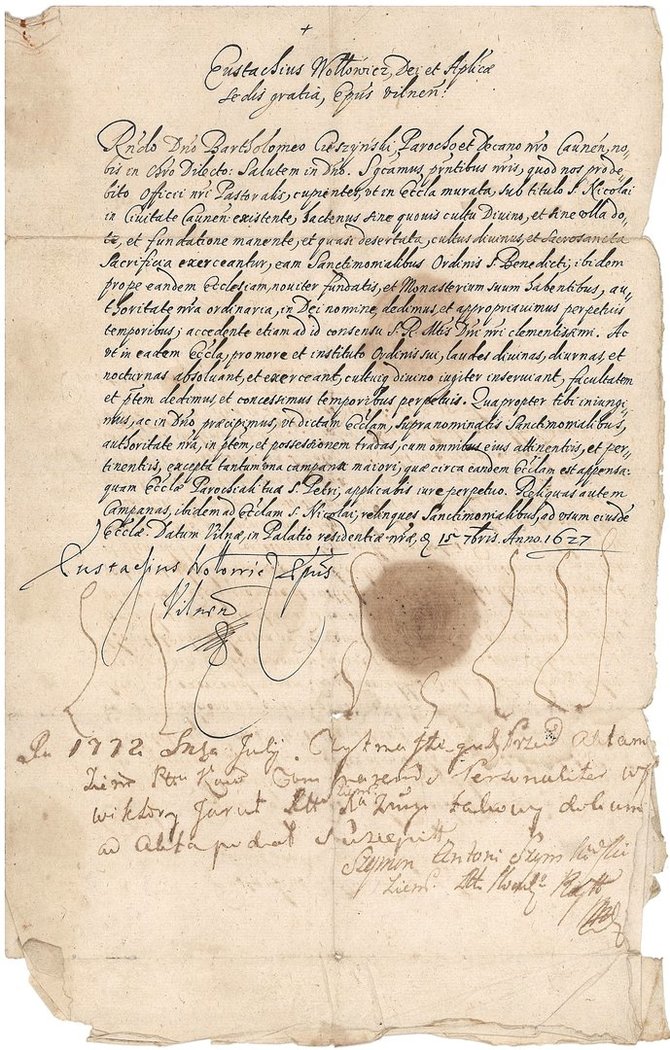 +
Eustachius Wołłowicz, Dei et Aplicæ
sedis gratia, Epūs Vilneñ:
Rñdo Dño Bartholomeo Cieszynski, Parocho et Decano nro Caunēn, no-
bis in Chro Directo: Salutem in Dño. Sgcamus, pñtibus nris, quod nos pro de-
bito Officii nri Pastoralis, cupientes, vt in Eccla murata, sub titulo S. Nicolai
in Ciuitate Caunen: existente, hactenus sine quouis cultu Diuino, et sine vlla do-
te, et fundatione manente, et quasi desertata, cultus diuinus, et Sacrosancta
Sacrificia exerceantur, eam Sanctimonialibus Ordinis S. Benedicti, ibidem
prope eandem Ecclesiam, nouiter fundatis, et Monasterium suum habentibus, au-
thoritate nra ordinaria, in Dei nomine, dedimus, et appropriauimus perpetuis
temporibus; accedente etiam ad id consensu S. R. Mtis Dñi nri clementissimi. Ac
vt in eadem Eccla, pro more et instituto Ordinis sui, laudes diuinas, diurnas, et
nocturnas absoluant, et exerceant, cultuiq diuino iugiter inseruiant, facultatem
et ptem dedimus, et concessimus temporibus perpetuis. Quapropter tibi iniungi-
mus, ac in Dño præcipimus, vt dictam Ecclam, supranominatis Sanctimonialibus,
authoritate nra, in ptem, et possessionem tradas, cum omnibus eius attinentiis, et per-
tinentiis, excepta tantum vna campana maiori; quæ circa eandem Ecclam est appensa:
quam Ecclæ Parochiali tuæ S. Petri, applicabis iure perpetuo. Reliquas autem
Campanas, ibidem ad Ecclam S. Nicolai, relinques Sanctimonialibus, ad vsum eiusdē
Ecclæ. Datum Vilnæ, in Palatio residentiæ nræ, 15 7bris. Anno. 1627
Eustachius Wołłowicz Epūs
Vilnen
1772 July przed Aktami
Ziem Personaliter
Wiktory
ad Akta podał
Szymon Antoni
Ziem